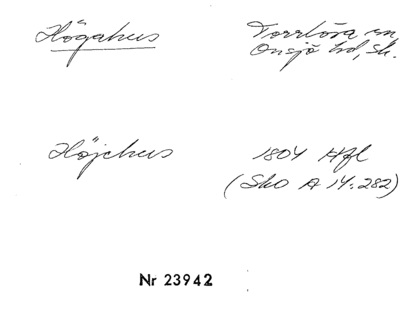 Högahus
Torrlösa sn,
Onsjö hd, Sk.
Höjehus
1804 Hfl
(Sko A 14:282)
Nr 23942